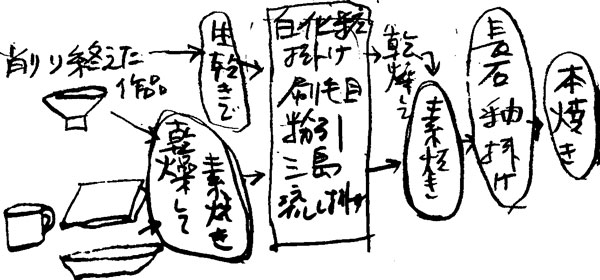 削り終えた
作品
生乾きで
乾燥して
素焼き
白化粧
掛け
刷毛目
粉引
三島
流し掛け
乾燥して
素焼き
長石釉掛け
本焼き